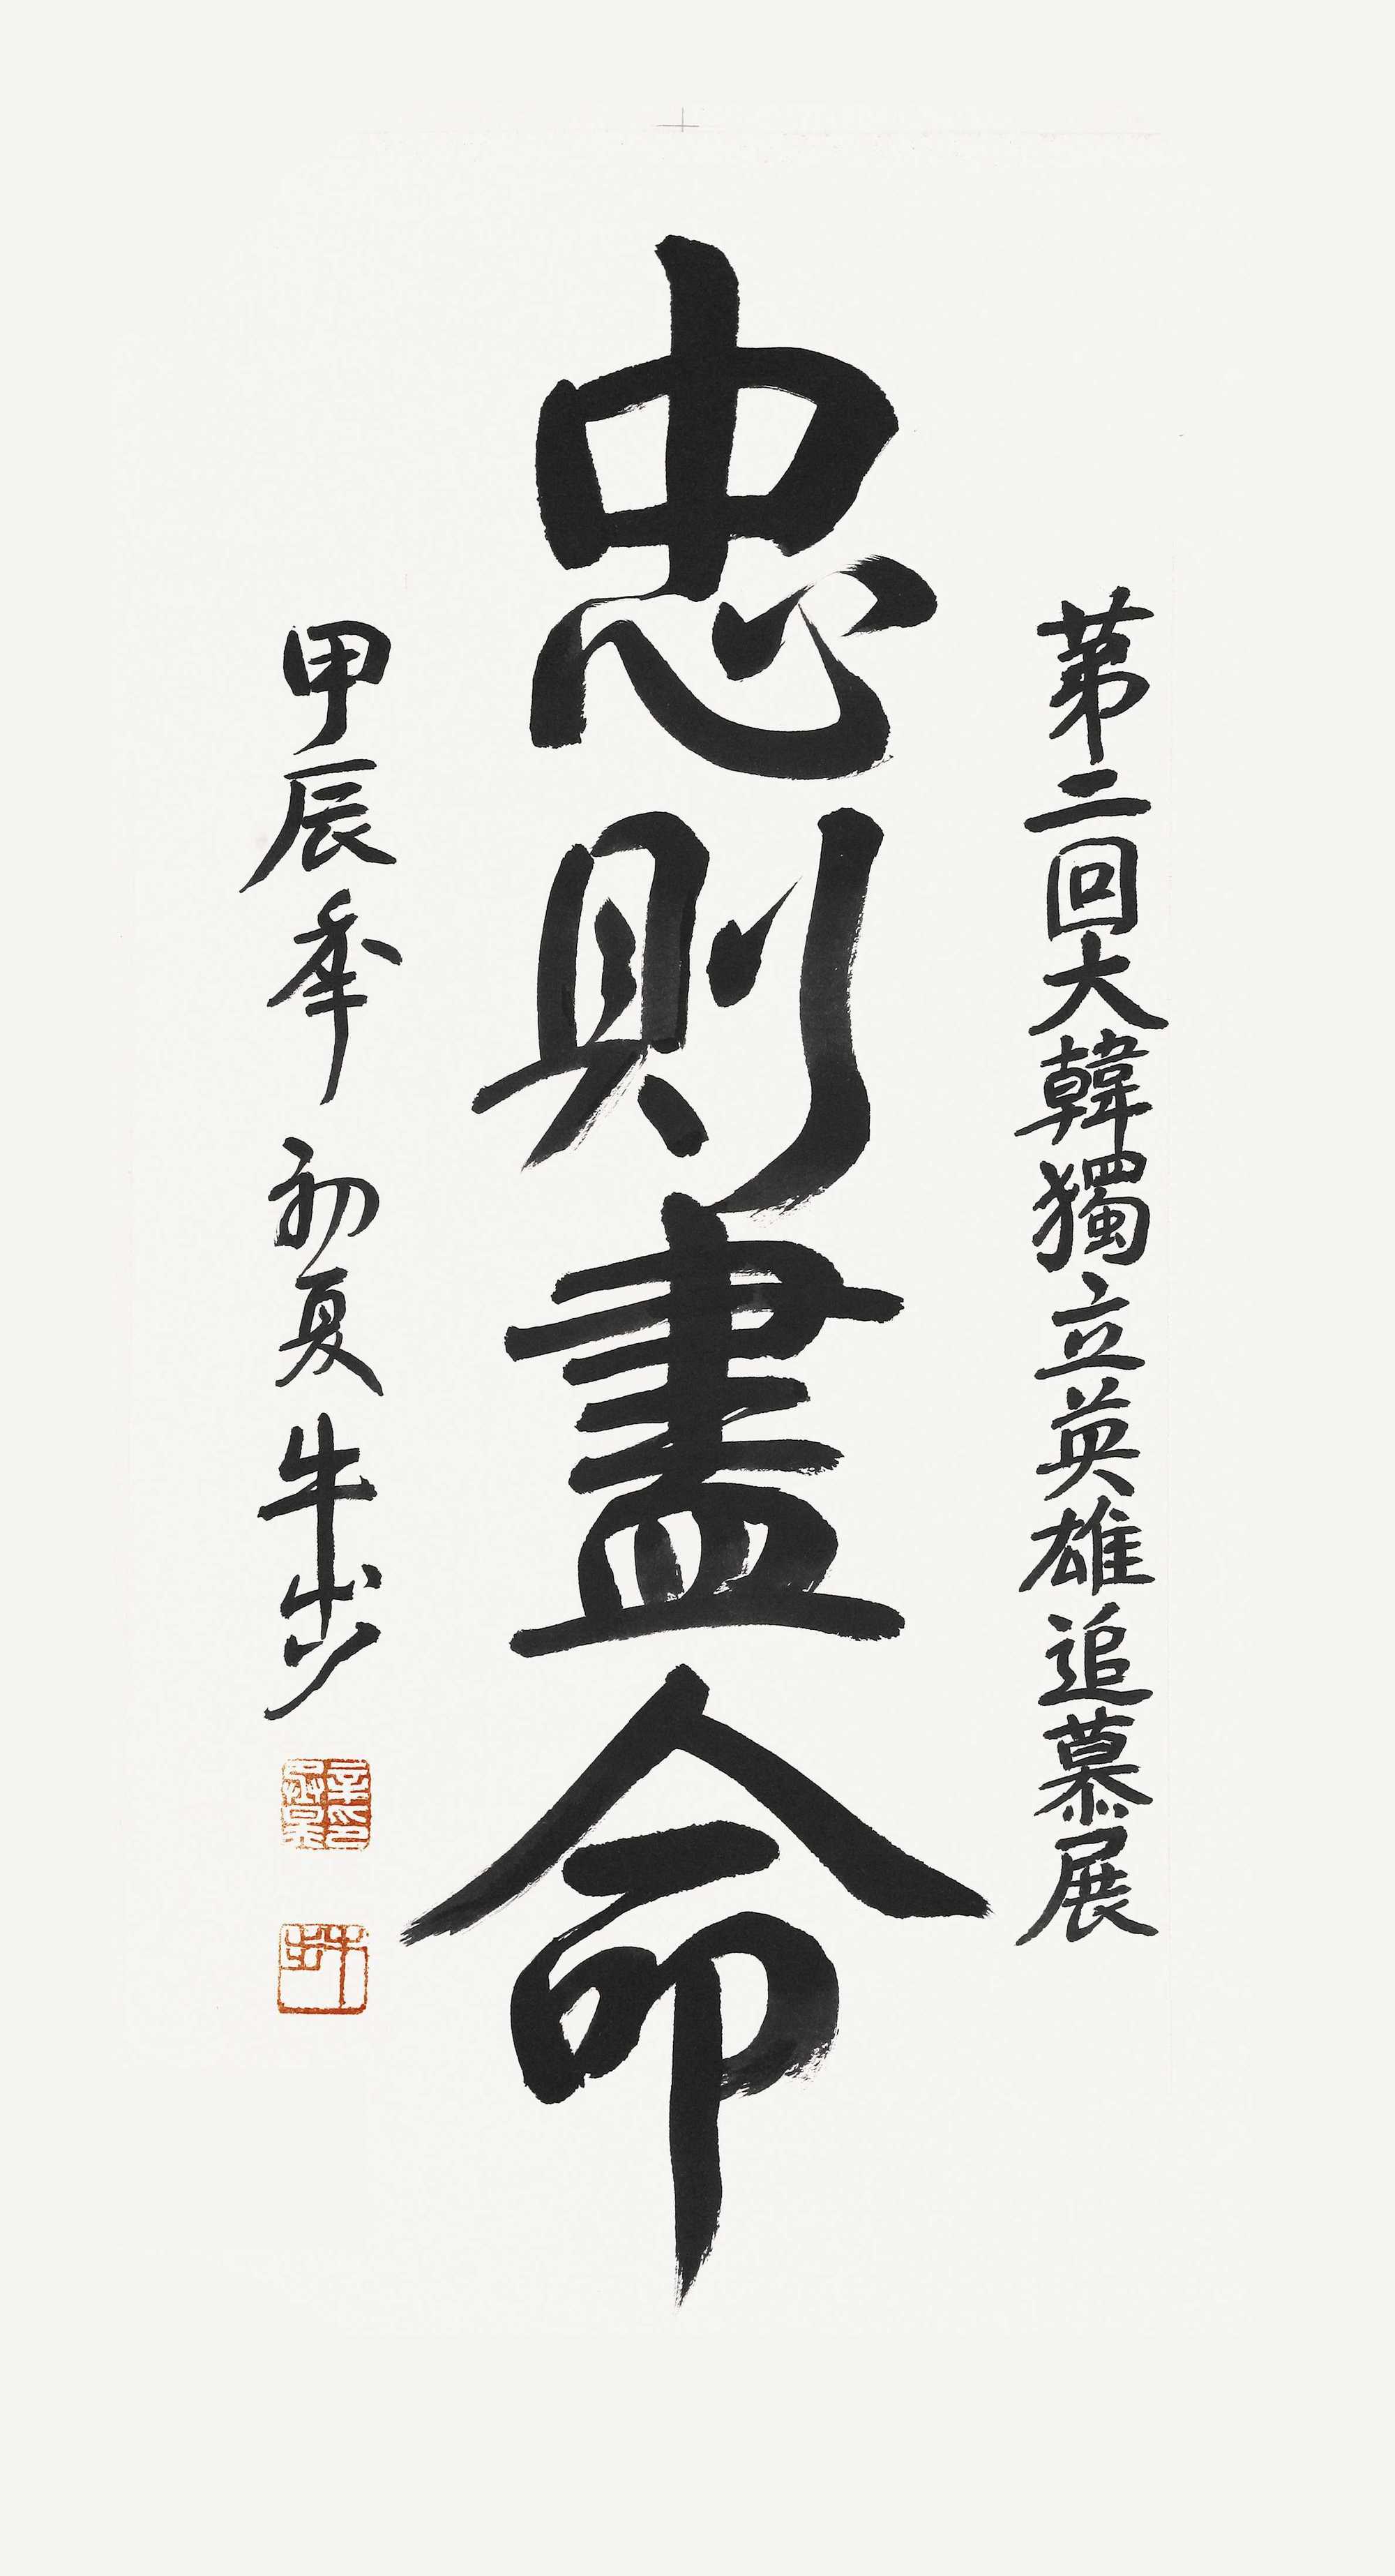 第二回大韓獨立英雄追慕展
忠則盡命
甲辰年 初夏 牛步
牛步